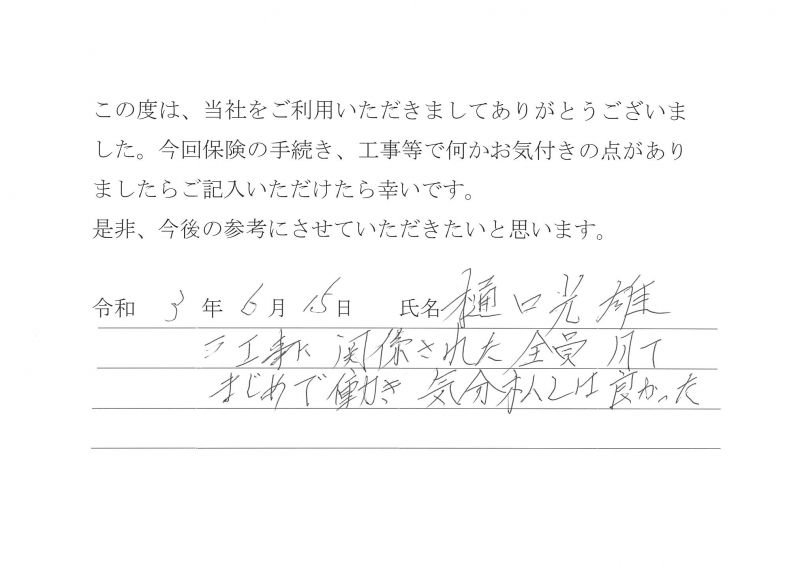 この度は、当社をご利用いただきましてありがとうございま
した。今回保険の手続き、工事等で何かお気付きの点があり
ましたらご記入いただけたら幸いです。
是非、今後の参考にさせていただきたいと思います。
令和 3 年 6 月 15 日 氏名 樋口光雄
工事に関係された全員
まじめで働き 気分 は良かった